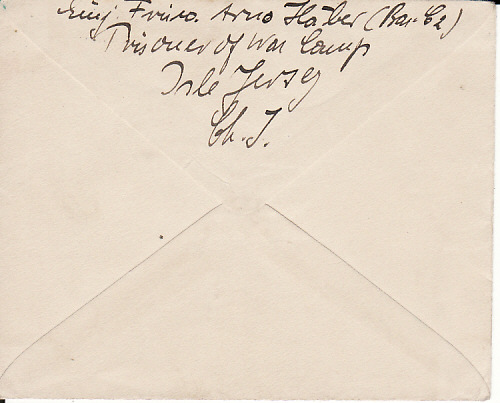 Einj. Freiw. Arno Häber (Bar. C2)
Prisoner of War Camp
Isle Jersey
Ch. I.